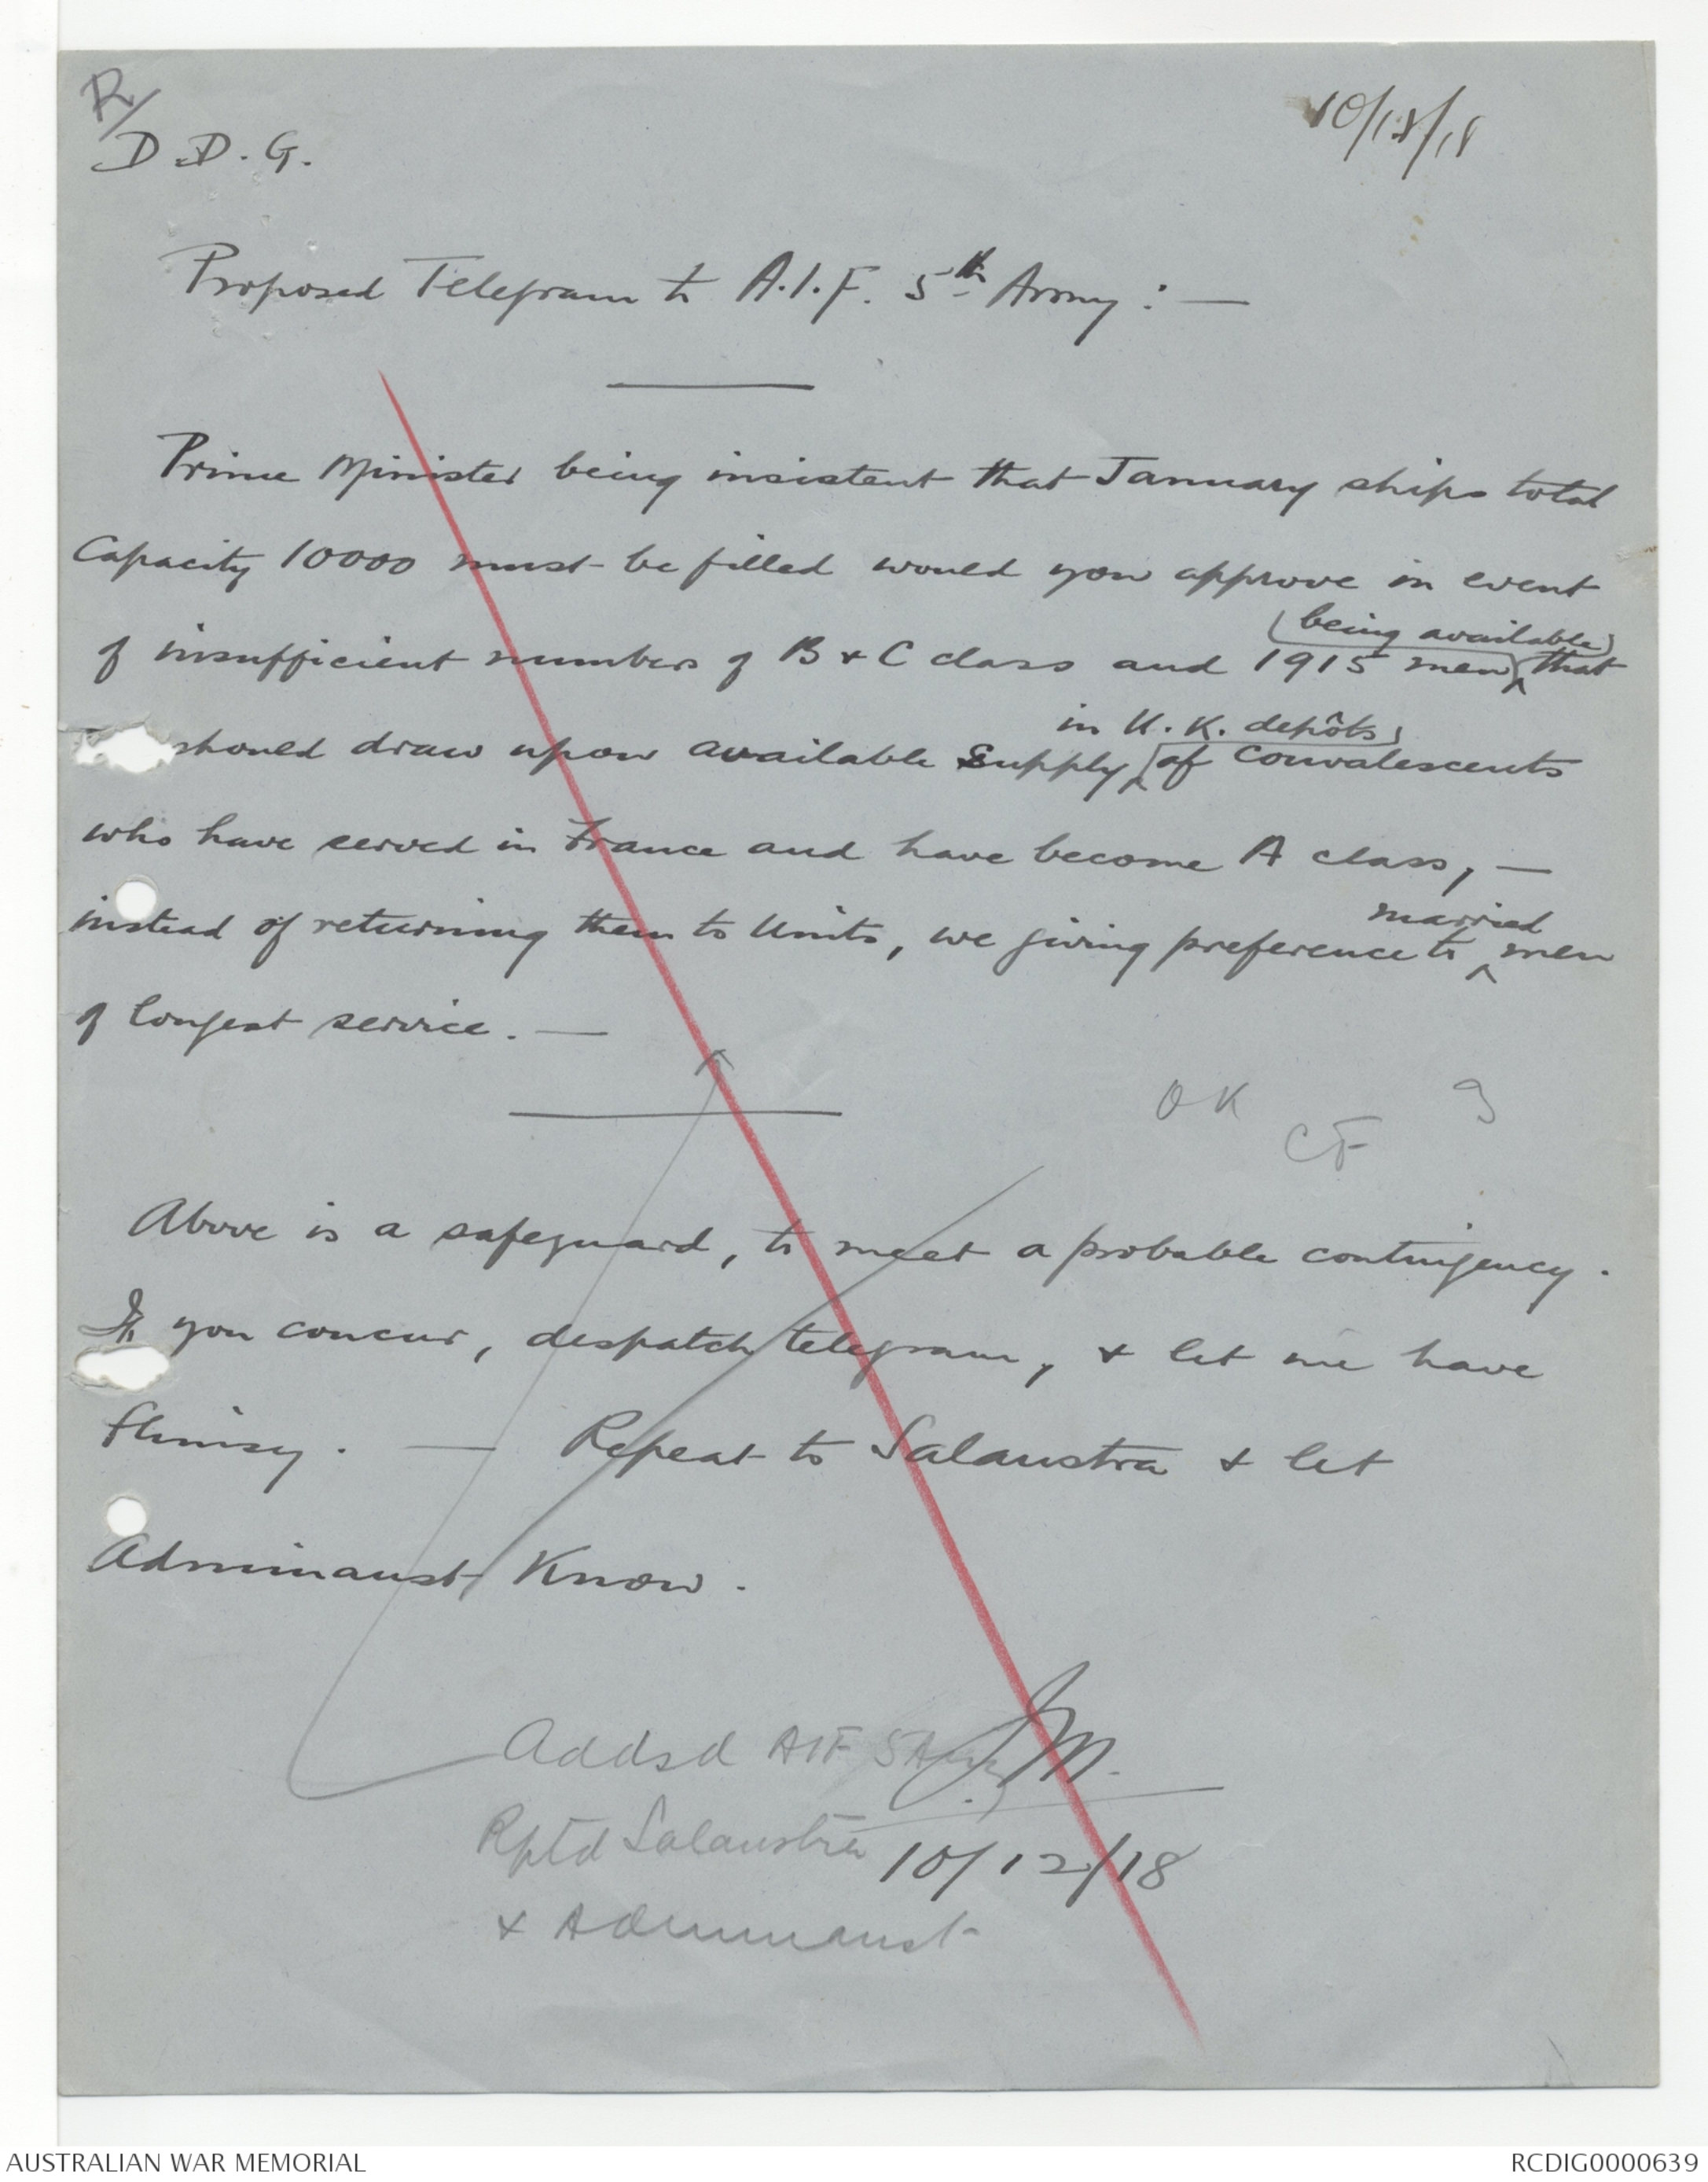 R/
10/12/18
D.D.G.
Proposed Telegram to A.I.F. 5th Army : —
Prime Minister being insistent that January ships total
Capacity 10000 must be filled would you approve in event
of insufficient numbers of B & C class and 1915 men (being available) that
should draw upon available supply in U.K. depôts of convalescents
who have served in France and have become A class, —
instead of returning them to Units, we giving preference to married men
of longest service. —
OK
CF
Above is a safeguard, to meet a probable contingency.
If you concur, despatch telegram, & let me have
flimsy. — Repeat to Salaustra & let
Adminaust know.
JM.
Addsd AIF 5 Army
Rptd Salaustra
10/12/18
& Adminaust
AUSTRALIAN WAR MEMORIAL
RCDIG0000639